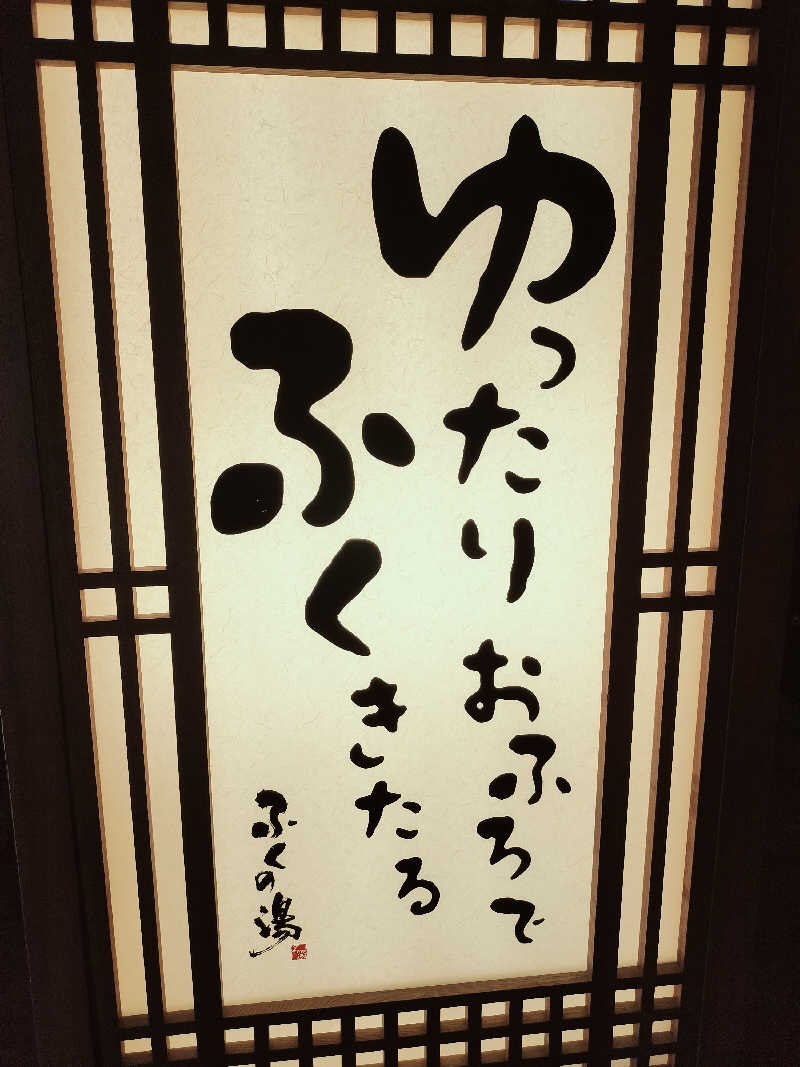 ゆったりおふろで
ふくきたる
ふくの湯